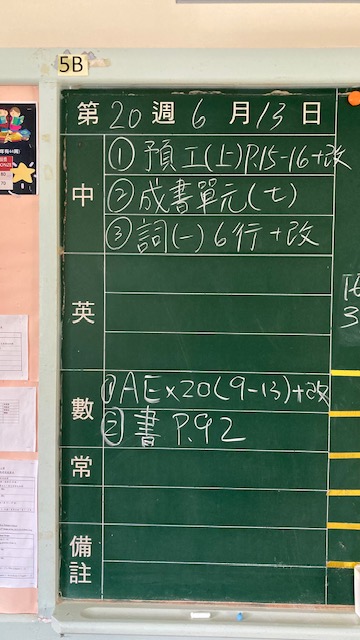 5B
第20週6月13日
中
①預工(上)P.15-16+改
②成書單元(七)
③詞(一)6行+改
英
數
①AE×20(9-13)+改
②書 P.92
常
備註